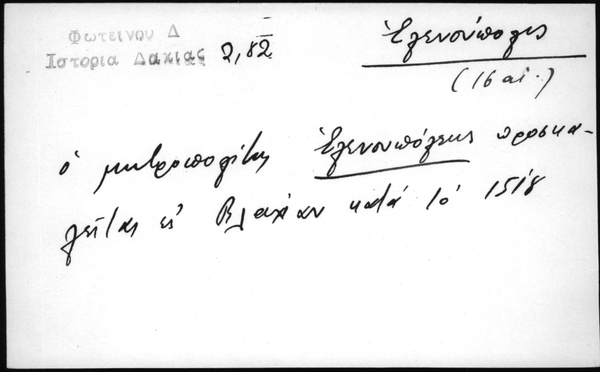 Φωτεινου Δ
Ἱστορια Δακιας 2,82
Ἑλενούπολις
(16 αἰ.)
ὁ μητροπολίτης Ἑλενουπόλεως προσκα-
λεῖται εἰς Βλαχίαν κατά τό 1518